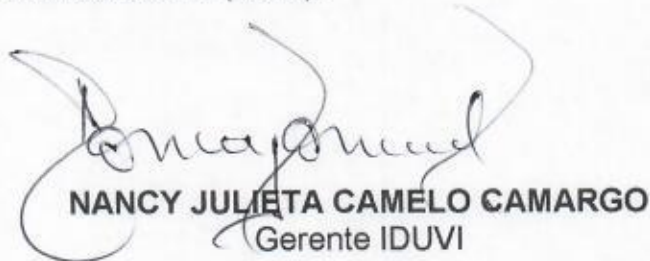 NANCY JULIETA CAMELO CAMARGO
Gerente IDUVI